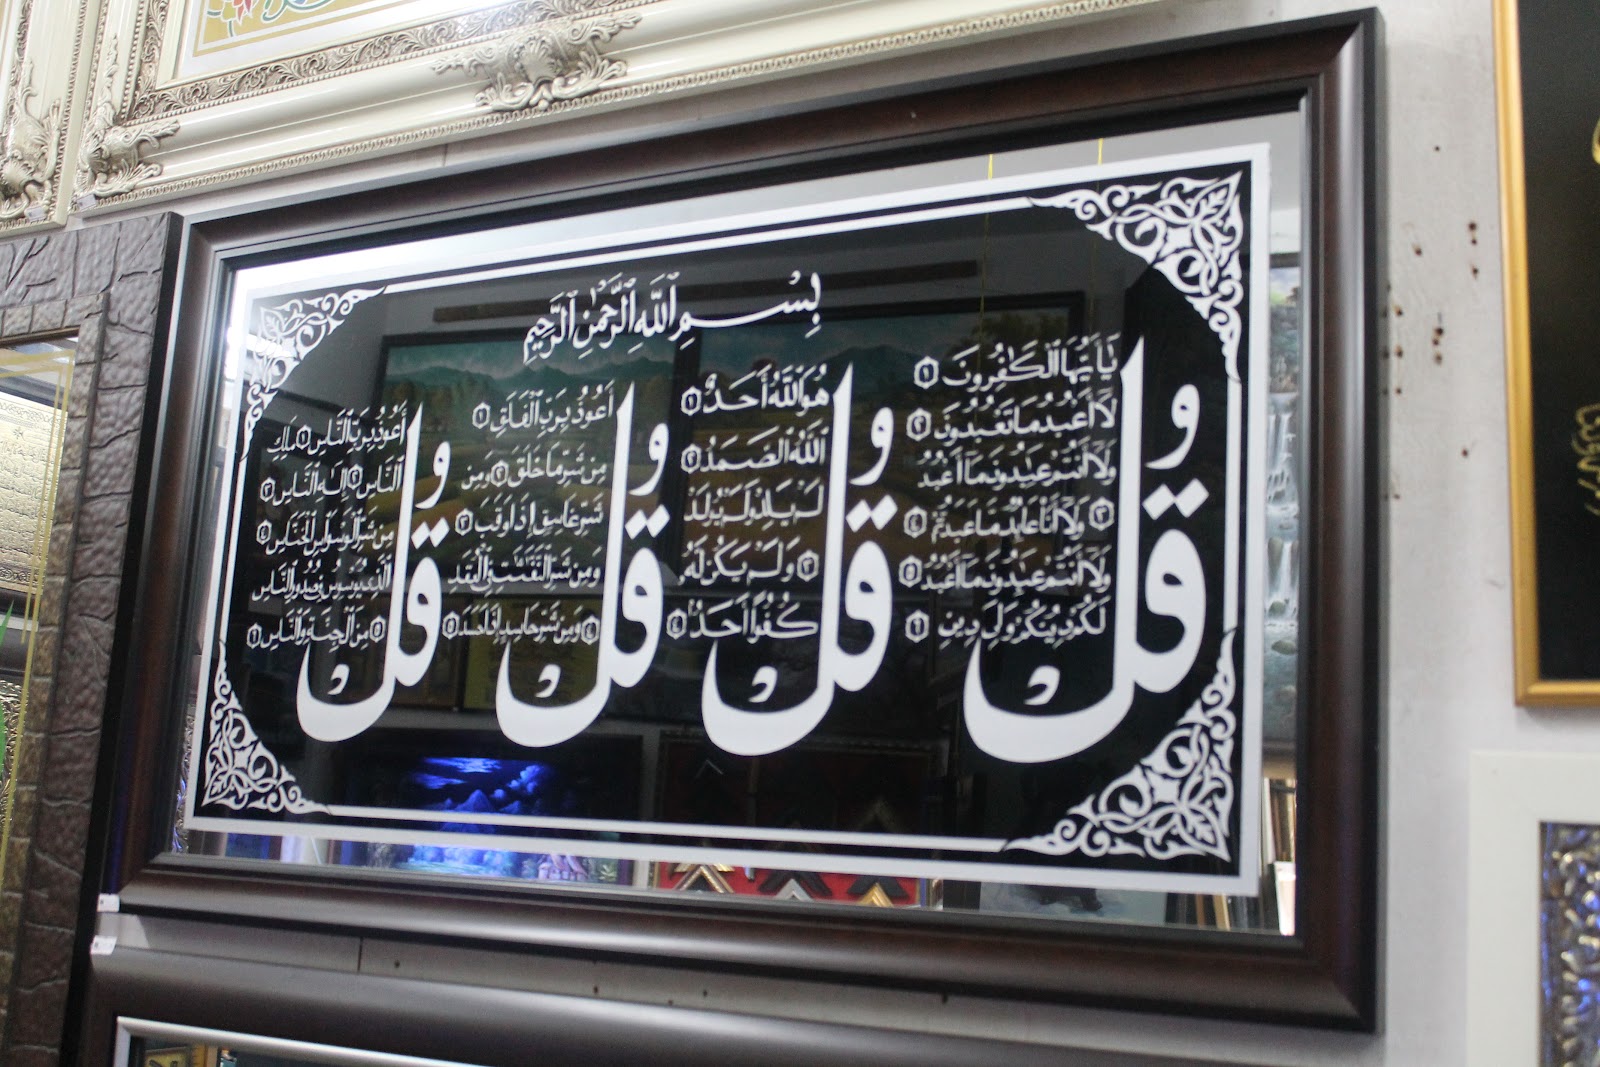 بِسْمِ ٱللَّهِ ٱلرَّحْمَٰنِ ٱلرَّحِيمِ
قُلْ
يَٰٓأَيُّهَا ٱلْكَٰفِرُونَ ١
لَآ أَعْبُدُ مَا تَعْبُدُونَ ٢
وَلَآ أَنتُمْ عَٰبِدُونَ مَآ أَعْبُدُ
٣ وَلَآ أَنَا۠ عَابِدٌ مَّا عَبَدتُّمْ ٤
وَلَآ أَنتُمْ عَٰبِدُونَ مَآ أَعْبُدُ ٥
لَكُمْ دِينُكُمْ وَلِيَ دِينِ ٦
قُلْ
هُوَ ٱللَّهُ أَحَدٌ ١
ٱللَّهُ ٱلصَّمَدُ ٢
لَمْ يَلِدْ وَلَمْ يُولَدْ
٣ وَلَمْ يَكُن لَّهُۥ
كُفُوًا أَحَدٌۢ ٤
قُلْ
أَعُوذُ بِرَبِّ ٱلْفَلَقِ ١
مِن شَرِّ مَا خَلَقَ ٢ وَمِن
شَرِّ غَاسِقٍ إِذَا وَقَبَ ٣
وَمِن شَرِّ ٱلنَّفَّٰثَٰتِ فِي ٱلْعُقَدِ
٤ وَمِن شَرِّ حَاسِدٍ إِذَا حَسَدَ ٥
قُلْ
أَعُوذُ بِرَبِّ ٱلنَّاسِ ١ مَلِكِ
ٱلنَّاسِ ٢ إِلَٰهِ ٱلنَّاسِ ٣
مِن شَرِّ ٱلْوَسْوَاسِ ٱلْخَنَّاسِ ٤
ٱلَّذِي يُوَسْوِسُ فِي صُدُورِ ٱلنَّاسِ
٥ مِنَ ٱلْجِنَّةِ وَٱلنَّاسِ ٦